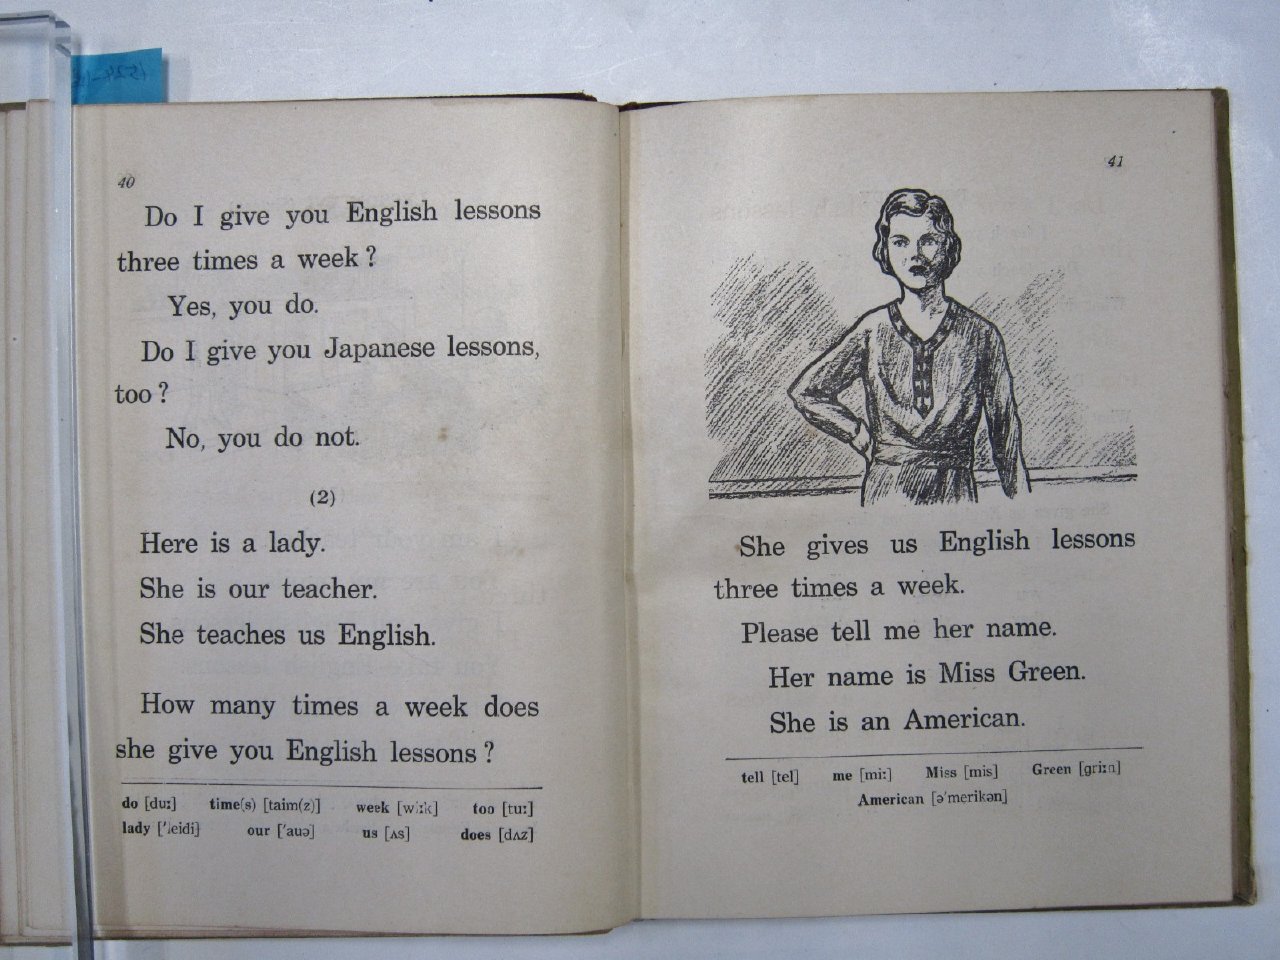 40
Do I give you English lessons
three times a week?
Yes, you do.
Do I give you Japanese lessons,
too?
No, you do not.
(2)
Here is a lady.
She is our teacher.
She teaches us English.
How many times a week does
she give you English lessons?
do [du:] time(s) [taim(z)] week [wi:k] too [tu:]
lady ['leidi] our ['auə] us [ʌs] does [dʌz]
41
She gives us English lessons
three times a week.
Please tell me her name.
Her name is Miss Green.
She is an American.
tell [tel] me [mi:] Miss [mis] Green [gri:n]
American [ə'merikən]